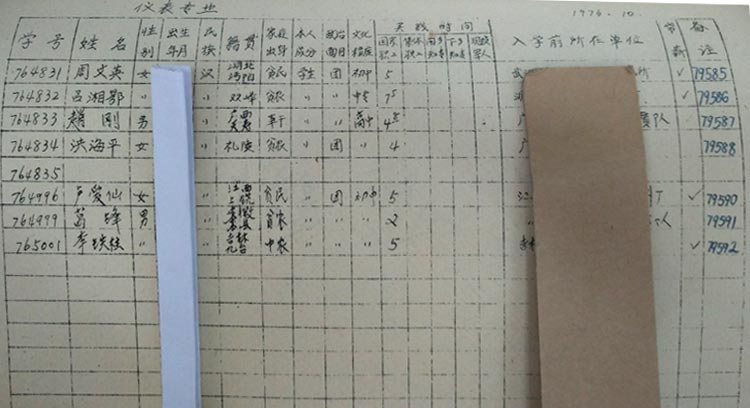 仪表专业
1976.10.
学号 姓名 性别 出生年月 民族 籍贯 家庭出身 本人成分 政治面目 文化程度 实践时间 国家职工 集体职工 回乡知青 下乡知青 入学前所在单位 备注
764831 周文英 女 汉 湖北 贫民 学生 团 初中 5 所 ✓ 79585
764832 吕湘鄂 〃 〃 双峰 贫农 〃 中专 ✓ 79586
764833 赵刚 男 〃 广西 〃 高中 队 ✓ 79587
764834 洪海平 女 〃 贫农 〃 团 〃 4 79588
764835
764996 卢爱仙 女 〃 江西 贫民 〃 团 初中 5 ✓ 79590
764999 葛锋 男 〃 安徽 贫农 〃 〃 〃 2 79591
765001 李 〃 〃 吉林九台 中农 〃 〃 〃 5 ✓ 79592